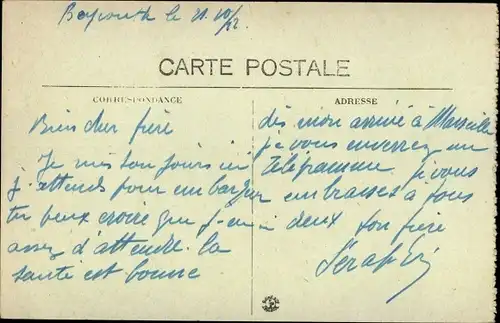 Beyrouth le 21 10/22
CARTE POSTALE
CORRESPONDANCE
ADRESSE
Bien cher frère
Je suis toujours ici
j'attends pour embarquer
tu peux croire que j'en ai
assez d'attendre. la
santé est bonne
dès mon arrivé à Marseille
je vous enverrez un
Télégramme. je vous
embrasses à tous
deux ton frère
Séraphin